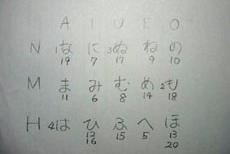 A I U E O
N 1な に 3ぬ ね の
19 7 17 9 10
M ま み む め 2も
11 6 8 14 18
H 4は ひ ふ へ ほ
12 15 5 13
16 20